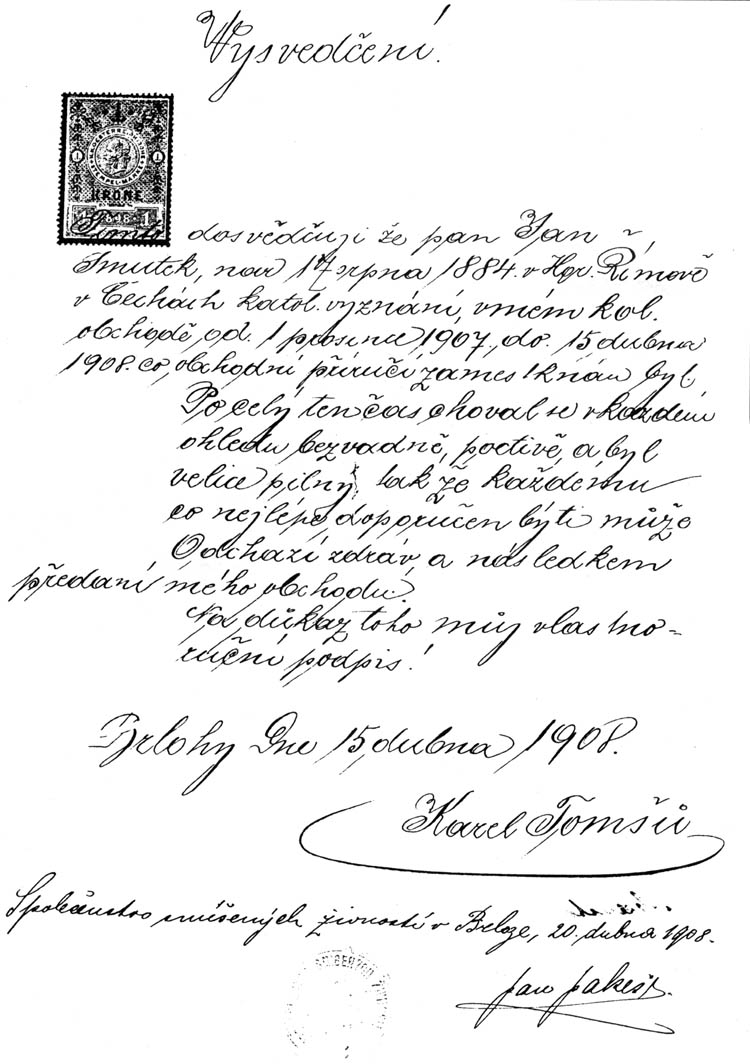 Vysvedčení.
1
KRONE
Tímto dosvědčuji že pan Jan
Smutek, nar 17 srpna 1884. v Hor. Římově
v Čechách katol. vyznání, v mém kol.
obchodě, od. 1 prosince, 1907, do. 15 dubna
1908. co, obchodní příručí zamestknán byl
Po celý ten čas choval se v každém
ohledu bezvadně, poctivě, a byl
velice pilný, tak že každému
co nejlépe, doporučen býti může
Odchazí zdráv, a následkem
předaní mého obchodu.
Na důkaz toho můj vlastno-
ruční podpis!
Brlohy Dne 15, dubna, 1908.
Karel Tomšů
Společenstvo smíšených živností v Brloze, 20. dubna 1908.
Jan Jakeš